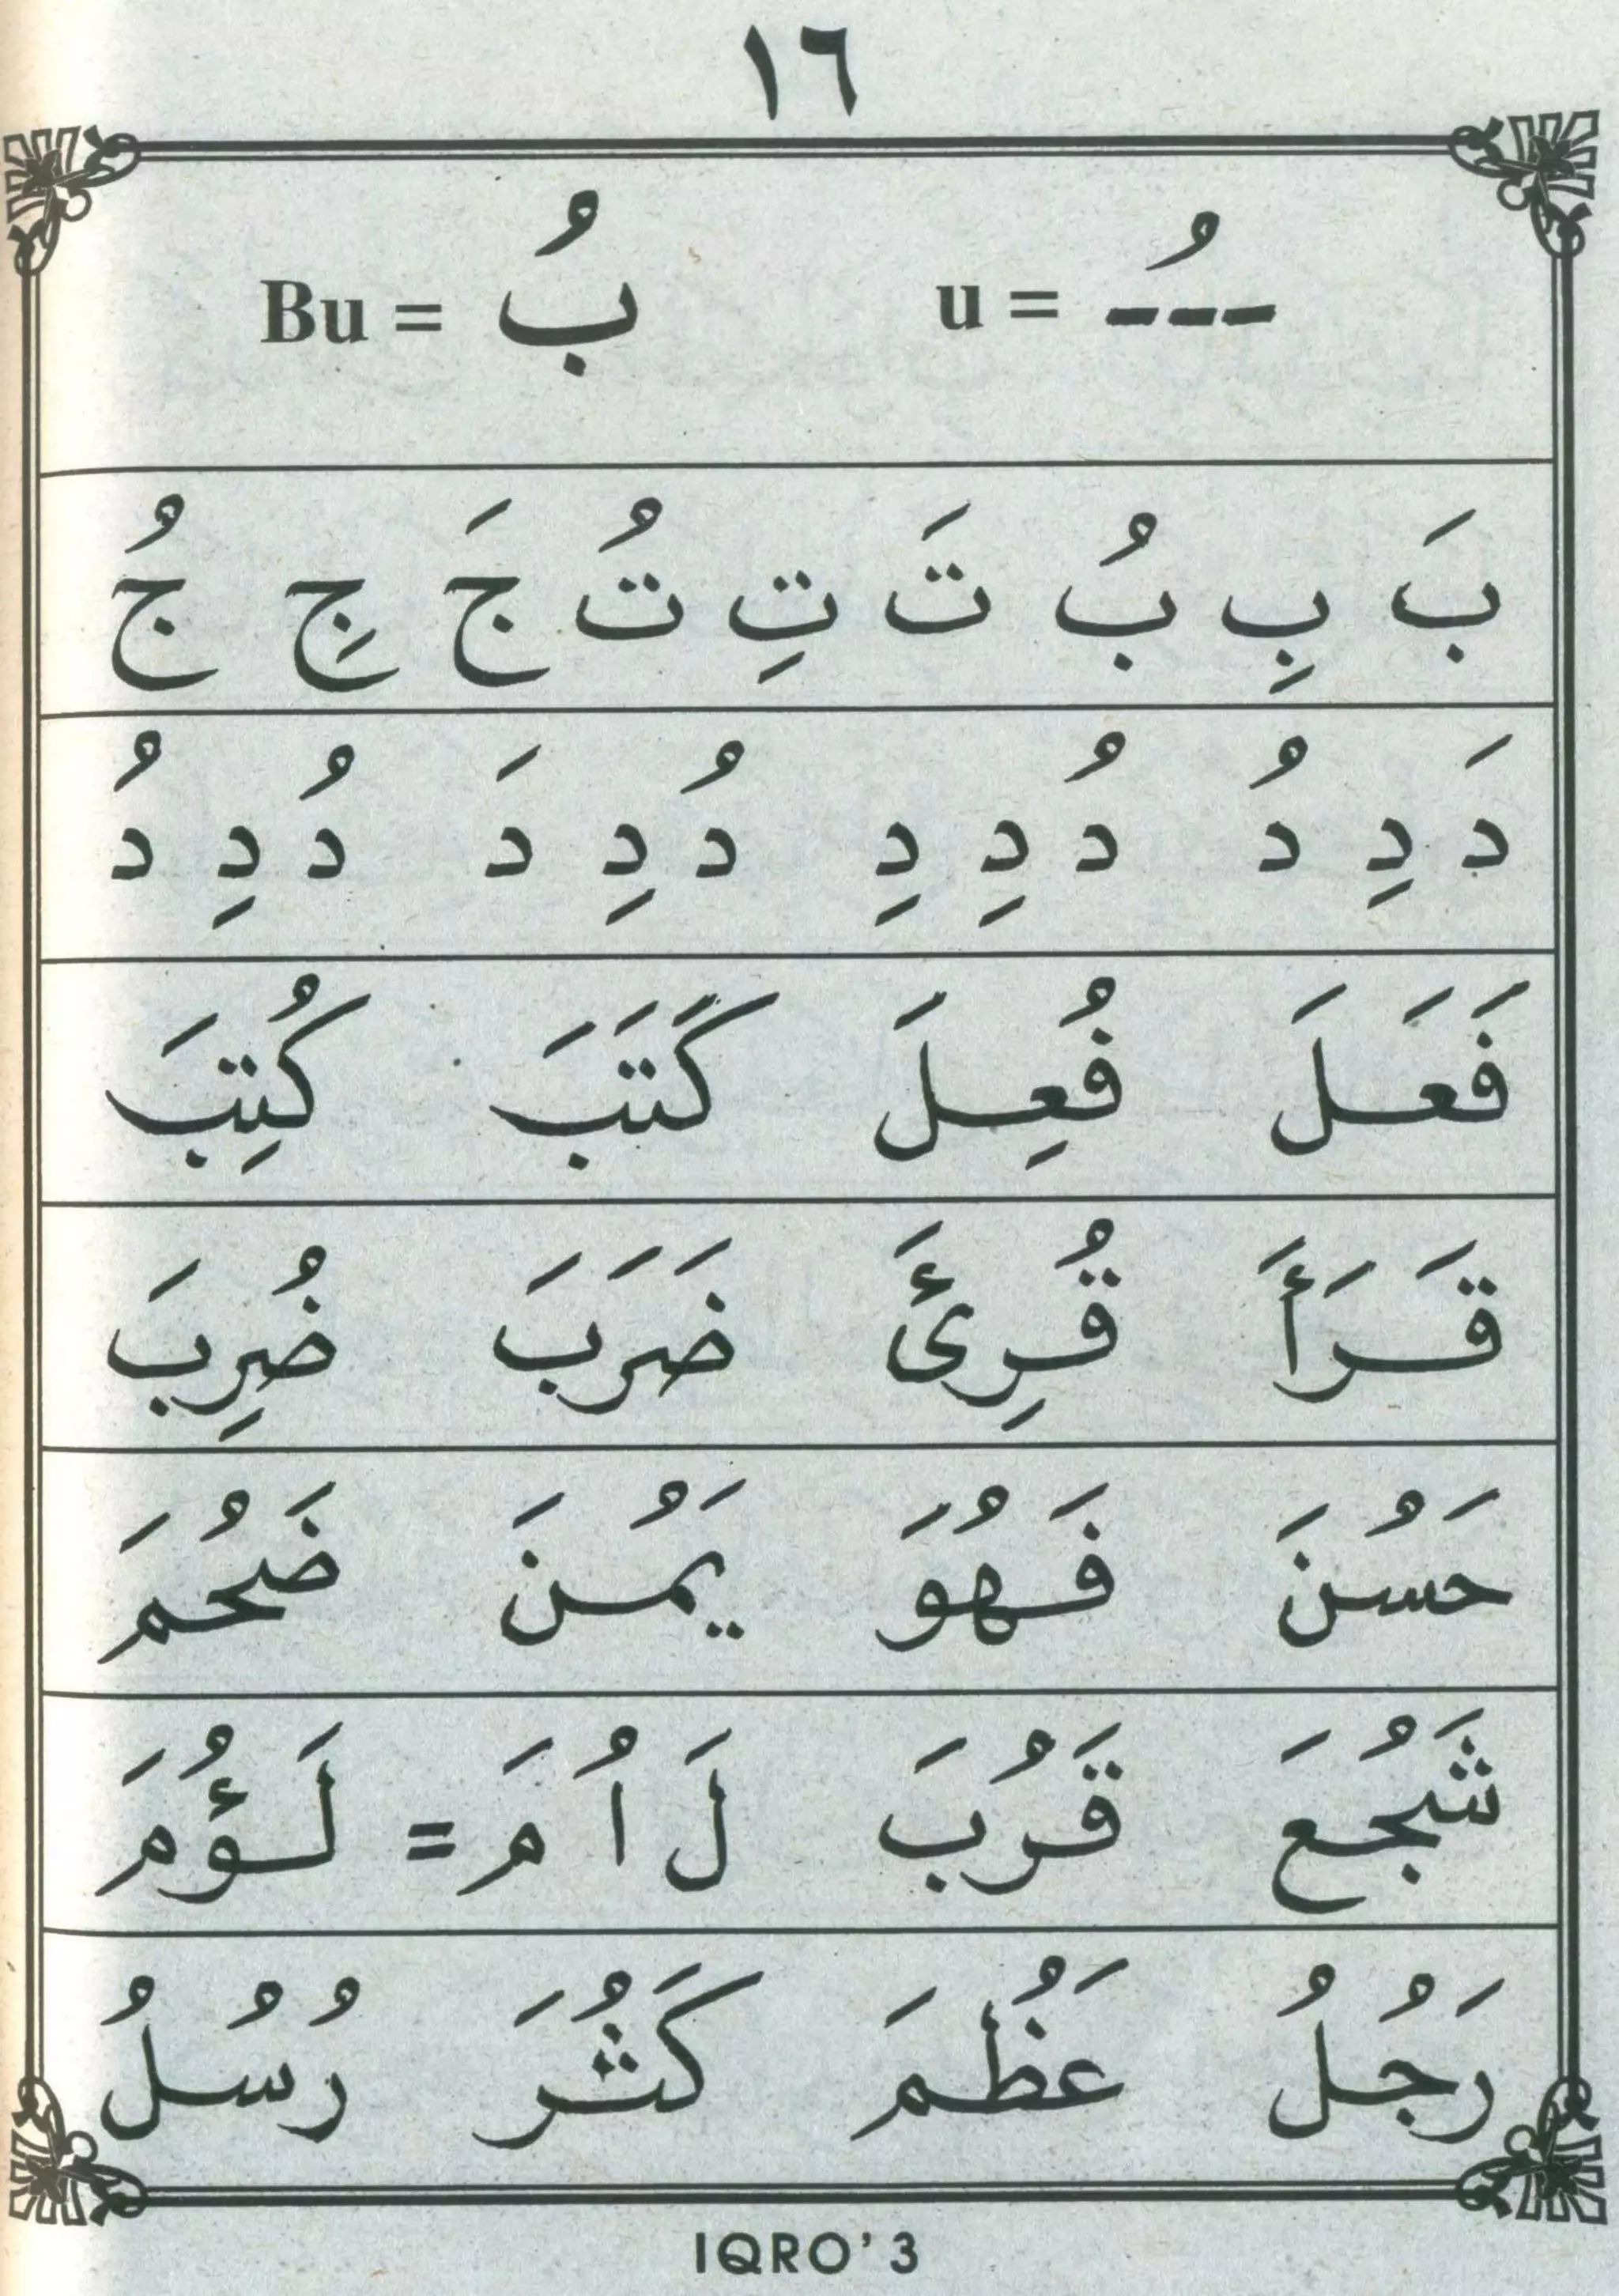 ١٦
ـُ = u    بُ = Bu
بَ بِ بُ تَ تِ تُ جَ جِ جُ
دَ دِ دُ دُ دِ دِ دُ دِ دَ دُ دِ دُ
فَعَلَ فُعِلَ كَتَبَ كُتِبَ
قَرَأَ قُرِئَ ضَرَبَ ضُرِبَ
حَسُنَ فَهُوَ يَمُنَ ضَحُمَ
شَجُعَ قَرُبَ لَ اُ مَ = لَؤُمَ
رَجُلُ عَظُمَ كَثُرَ رُسُلُ
IQRO' 3